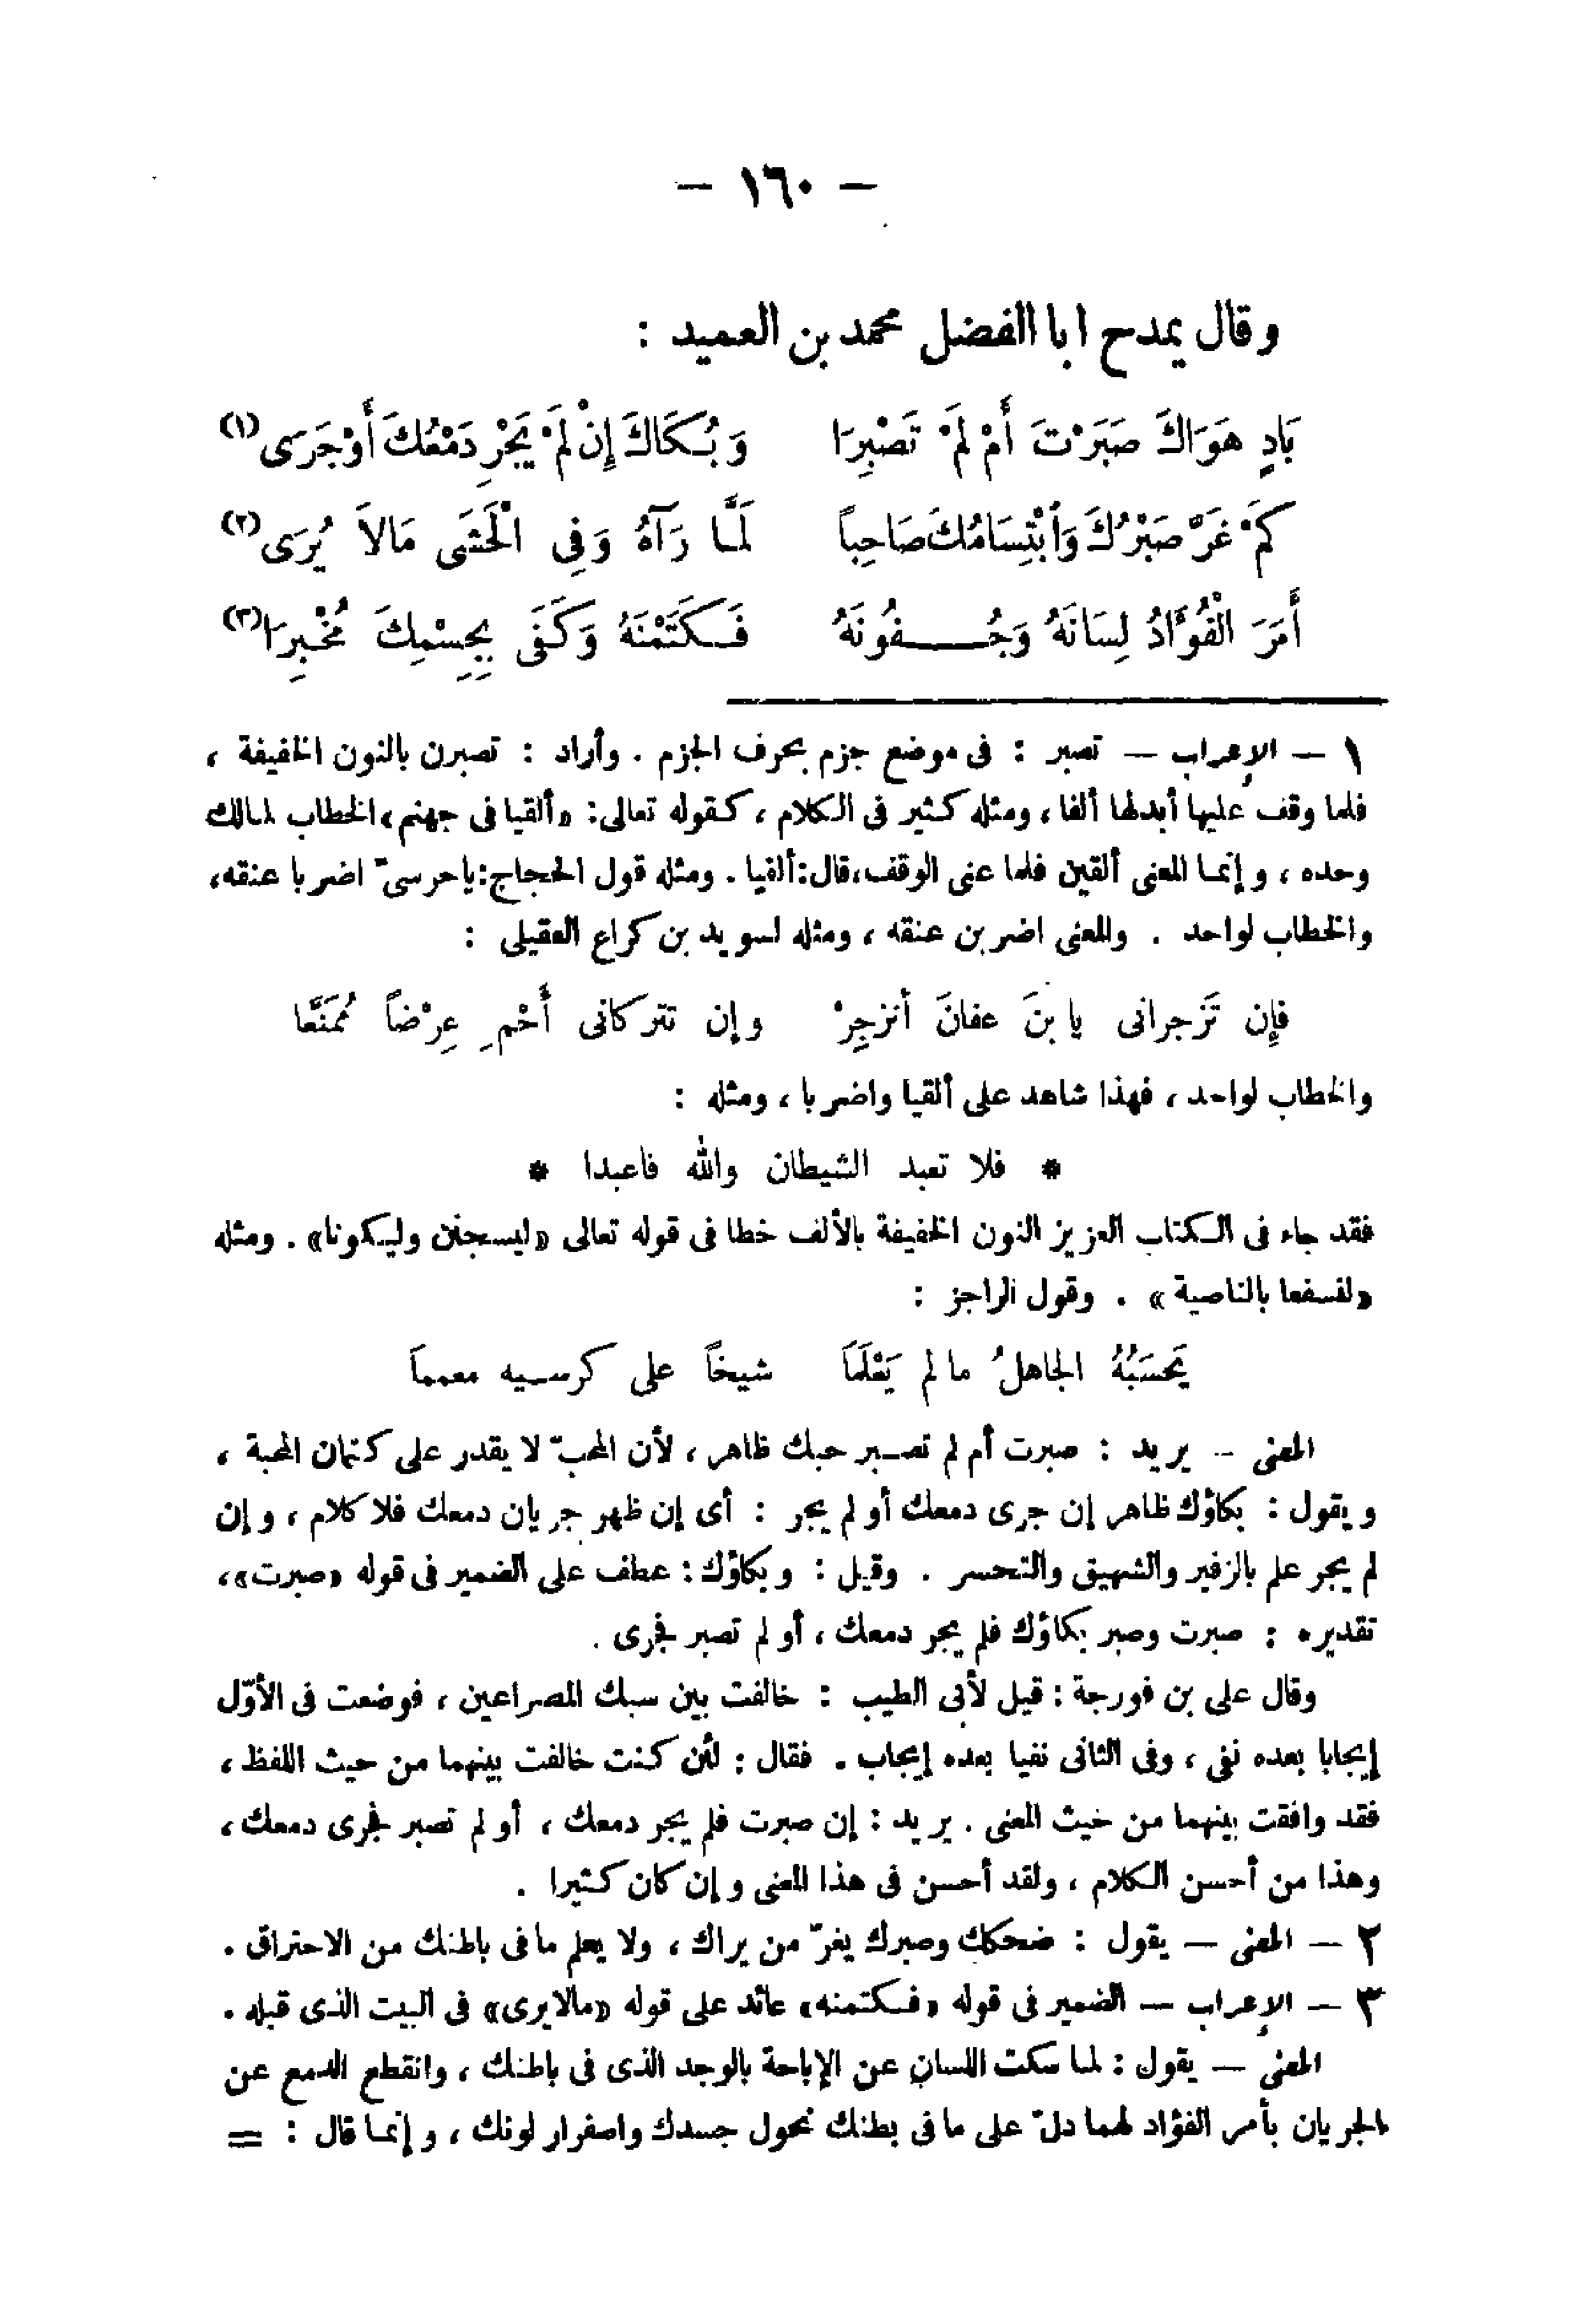 — ١٦٠ —
وقال يمدح ابا الفضل محمد بن العميد :
بَادٍ هَوَاكَ صَبَرْتَ أَمْ لَمْ تَصْبِرَا وَبُكَاكَ إِنْ لَمْ يَجْرِ دَمْعُكَ أَوْ جَرَى (١)
كَمْ غَرَّ صَبْرُكَ وَابْتِسَامُكَ صَاحِباً لَمَّا رَآهُ وَفِى الْحَشَى مَالاَ يُرَى (٢)
أَمَرَ الْفُؤَادُ لِسَانَهُ وَجُفُونَهُ فَكَتَمْنَهُ وَكَفَى بِجِسْمِكَ مُخْبِرَا (٣)
١ — الإعراب — تصبر : فى موضع جزم بحرف الجزم . وأراد : تصبرن بالنون الخفيفة ،
فلما وقف عليها أبدلها ألفا ، ومثله كثير فى الكلام ، كقوله تعالى: «ألقيا فى جهنم» الخطاب لمالك
وحده ، وإنما المعنى ألقين فلما عنى الوقف،قال:ألقيا . ومثله قول الحجاج:ياحرسىّ اضربا عنقه،
والخطاب لواحد . والمعنى اضربن عنقه ، ومثله لسويد بن كراع العقيلى :
فإِن تَزجرانى يا بنَ عفانَ أنزجِرْ وإن تتركانى أَحْمِ عِرْضاً مُمَنَّعا
والخطاب لواحد ، فهذا شاهد على ألقيا واضربا ، ومثله :
* فلا تعبد الشيطان والله فاعبدا *
فقد جاء فى الكتاب العزيز النون الخفيفة بالألف خطا فى قوله تعالى «ليسجنن وليكونا» . ومثله
«لنسفعا بالناصية» . وقول الراجز :
يَحسَبُهُ الجاهلُ ما لم يَعْلَمَا شيخاً على كرسيه معمماَ
المعنى - يريد : صبرت أم لم تصبر حبك ظاهر ، لأن المحبّ لا يقدر على كتمان المحبة ،
ويقول : بكاؤك ظاهر إن جرى دمعك أو لم يجر : أى إن ظهر جريان دمعك فلا كلام ، وإن
لم يجر علم بالزفير والشهيق والتحسر . وقيل : وبكاؤك : عطف على الضمير فى قوله «صبرت»،
تقديره : صبرت وصبر بكاؤك فلم يجر دمعك ، أو لم تصبر فجرى .
وقال على بن فورجة : قيل لأبى الطيب : خالفت بين سبك المصراعين ، فوضعت فى الأوّل
إيجابا بعده نفى ، وفى الثانى نفيا بعده إيجاب . فقال : لئن كنت خالفت بينهما من حيث اللفظ ،
فقد وافقت بينهما من خيث المعنى . يريد : إن صبرت فلم يجر دمعك ، أو لم تصبر فجرى دمعك ،
وهذا من أحسن الكلام ، ولقد أحسن فى هذا المعنى وإن كان كثيرا .
٢ — المعنى — يقول : ضحكك وصبرك يغرّ من يراك ، ولا يعلم ما فى باطنك من الاحتراق .
٣ — الإعراب — الضمير فى قوله «فكتمنه» عائد على قوله «مالايرى» فى البيت الذى قبله .
المعنى — يقول : لما سكت اللسان عن الإباحة بالوجد الذى فى باطنك ، وانقطع الدمع عن
الجريان بأمر الفؤاد لهما دلّ على ما فى بطنك نحول جسدك واصفرار لونك ، وإنما قال : =